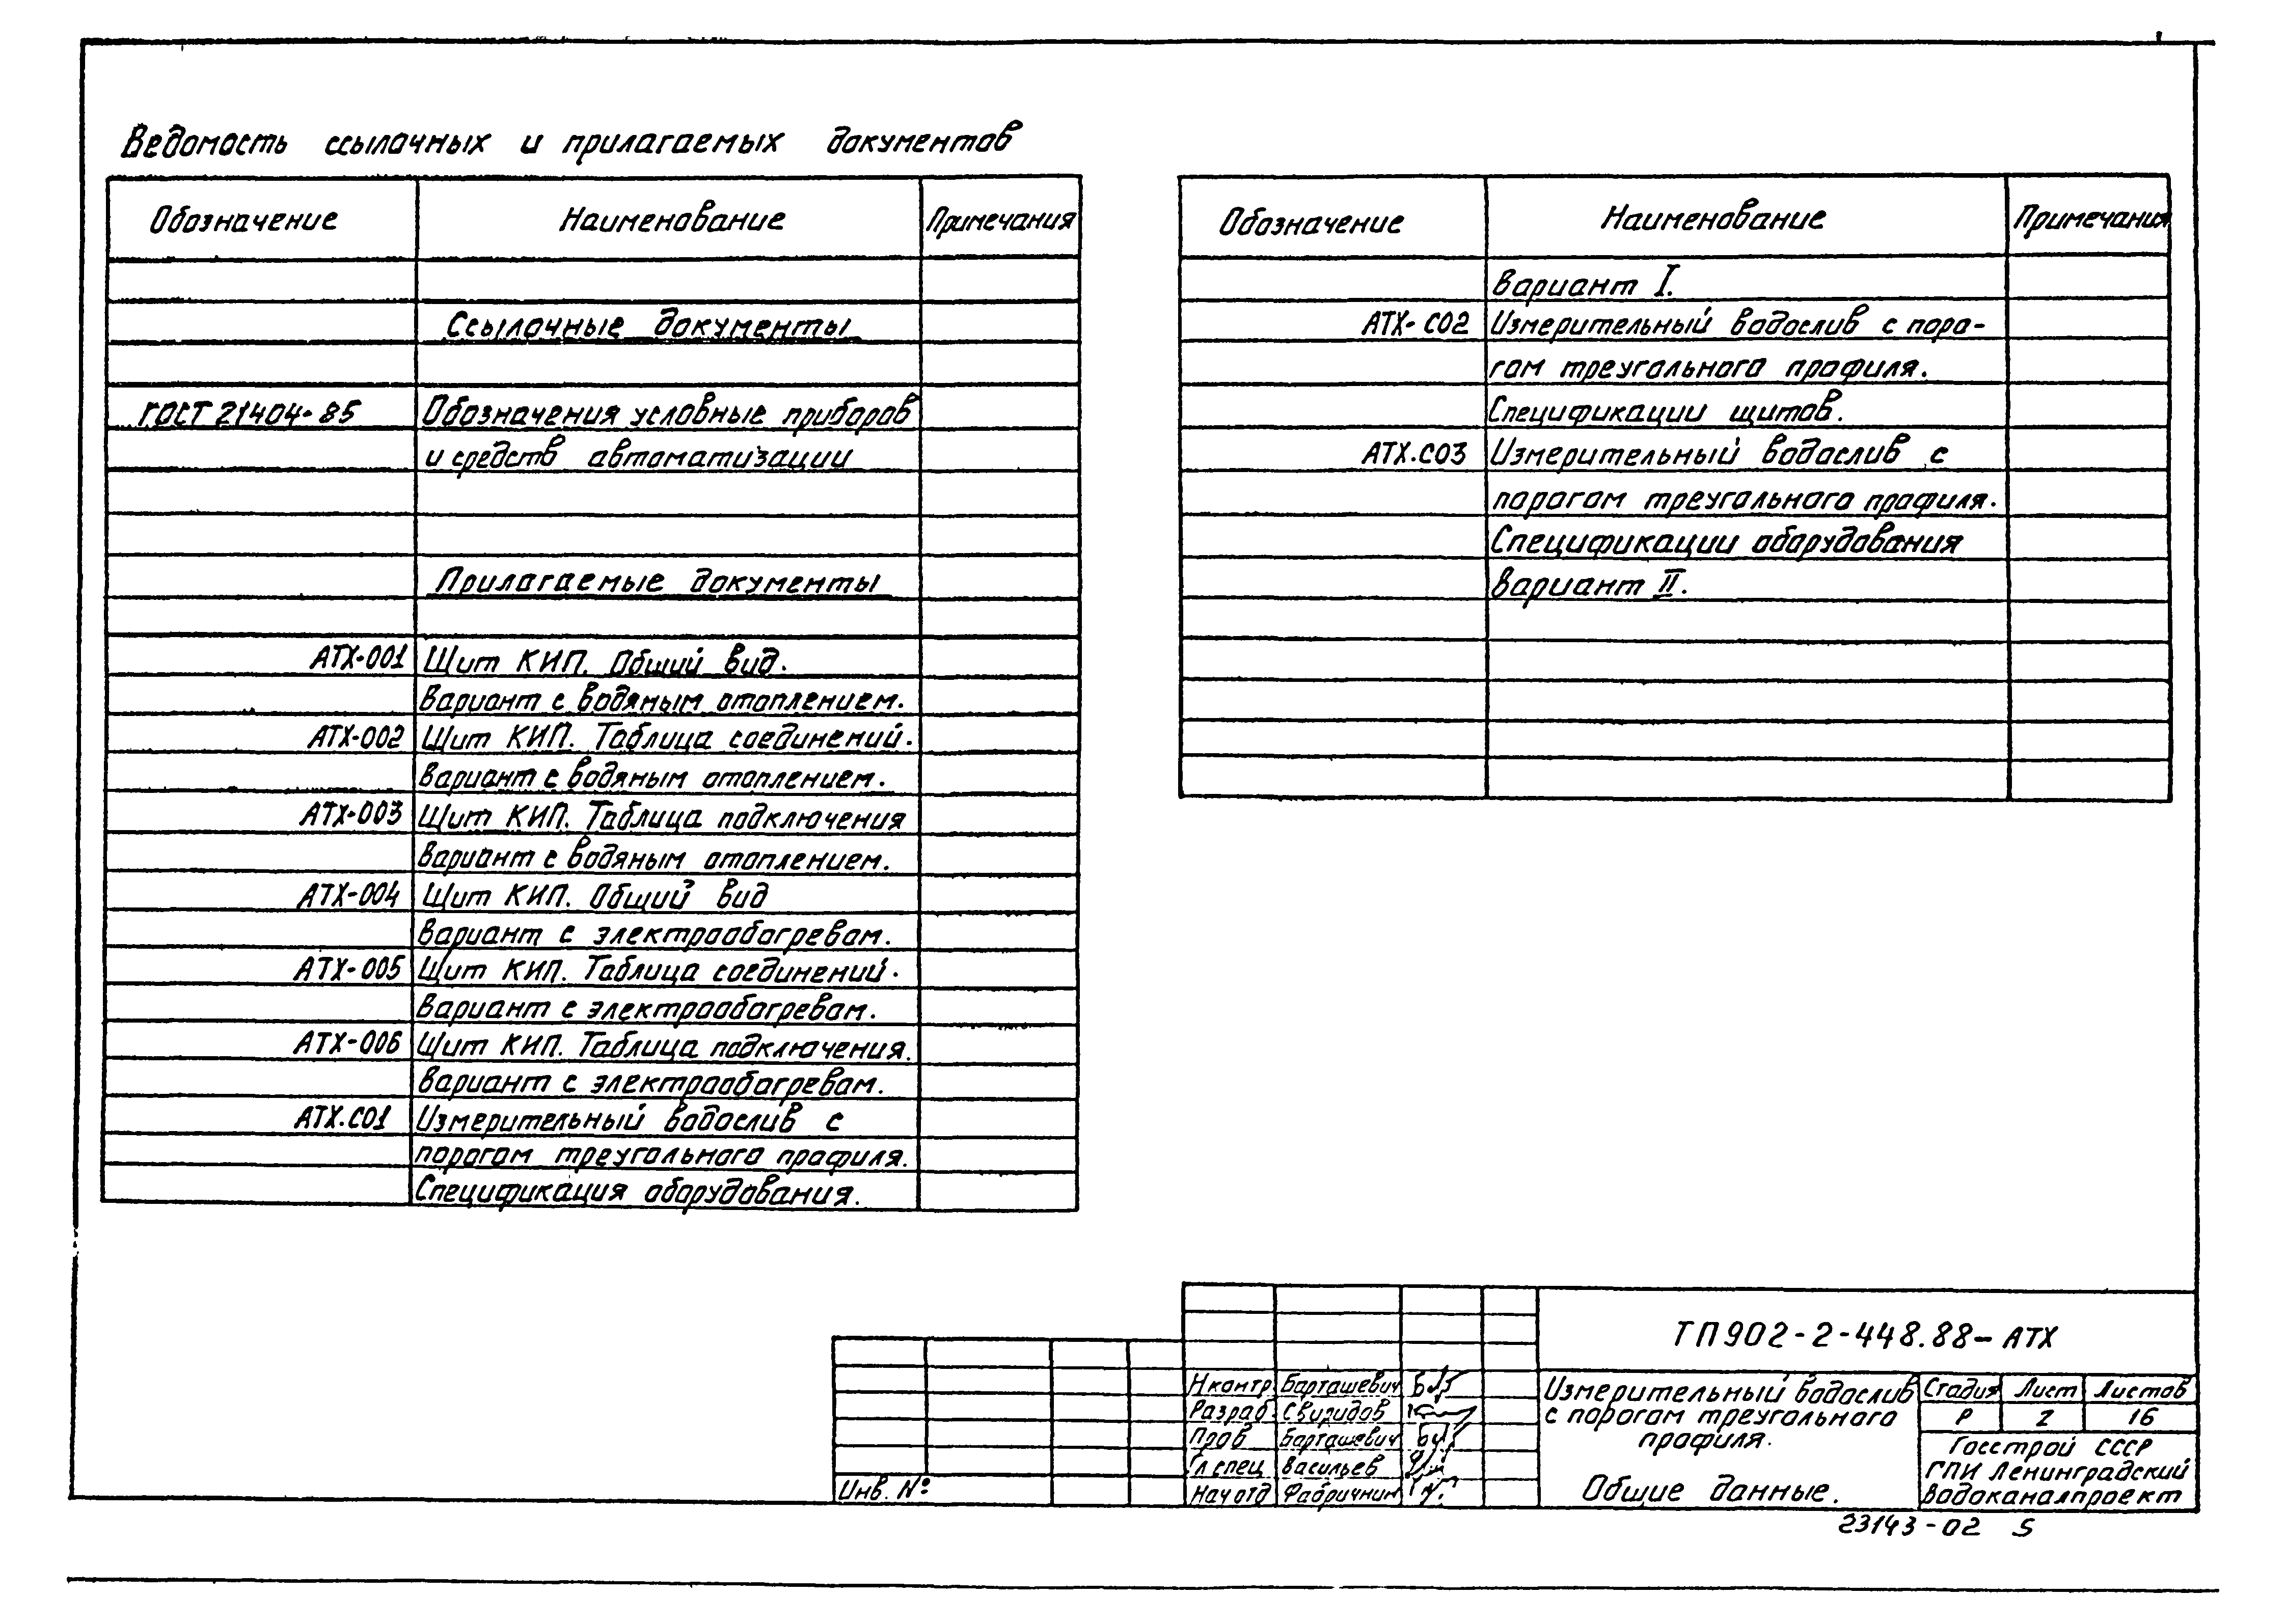 Ведомость ссылочных и прилагаемых документов
Обозначение Наименование Примечания
Ссылочные документы
ГОСТ 21404-85 Обозначения условные приборов
и средств автоматизации
Прилагаемые документы
АТХ-001 Щит КИП. Общий вид.
Вариант с водяным отоплением.
АТХ-002 Щит КИП. Таблица соединений.
Вариант с водяным отоплением.
АТХ-003 Щит КИП. Таблица подключения
Вариант с водяным отоплением.
АТХ-004 Щит КИП. Общий вид
Вариант с электрообогревом.
АТХ-005 Щит КИП. Таблица соединений.
Вариант с электрообогревом.
АТХ-006 Щит КИП. Таблица подключения.
Вариант с электрообогревом.
АТХ.С01 Измерительный водослив с
порогом треугольного профиля.
Спецификация оборудования.
Обозначение Наименование Примечания
Вариант I.
АТХ-С02 Измерительный водослив с поро-
гом треугольного профиля.
Спецификации щитов.
АТХ.С03 Измерительный водослив с
порогом треугольного профиля.
Спецификации оборудования
Вариант II.
ТП902-2-448.88-АТХ
Н контр Барташевич
Разраб. Свиридов
Пров Барташевич
Гл спец Васильев
Нач отд Фабричнин
Инв. №
Измерительный водослив
с порогом треугольного
профиля.
Общие данные.
Стадия Лист Листов
Р 2 16
Госстрой СССР
ГПИ Ленинградский
Водоканалпроект
23143-02 5